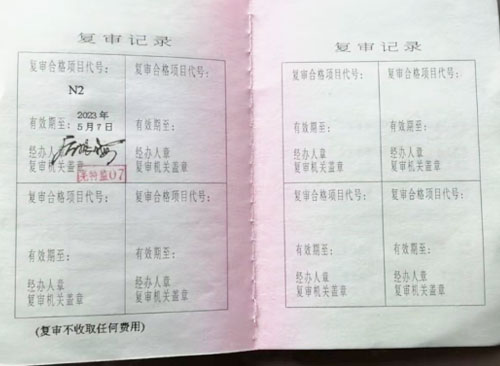 复审记录
复审合格项目代号：
N2
有效期至：
2023年
5月7日
经办人章
复审机关盖章
复审合格项目代号：
有效期至：
经办人章
复审机关盖章
复审合格项目代号：
有效期至：
经办人章
复审机关盖章
复审合格项目代号：
有效期至：
经办人章
复审机关盖章
(复审不收取任何费用)
复审记录
复审合格项目代号：
有效期至：
经办人章
复审机关盖章
复审合格项目代号：
有效期至：
经办人章
复审机关盖章
复审合格项目代号：
有效期至：
经办人章
复审机关盖章
复审合格项目代号：
有效期至：
经办人章
复审机关盖章